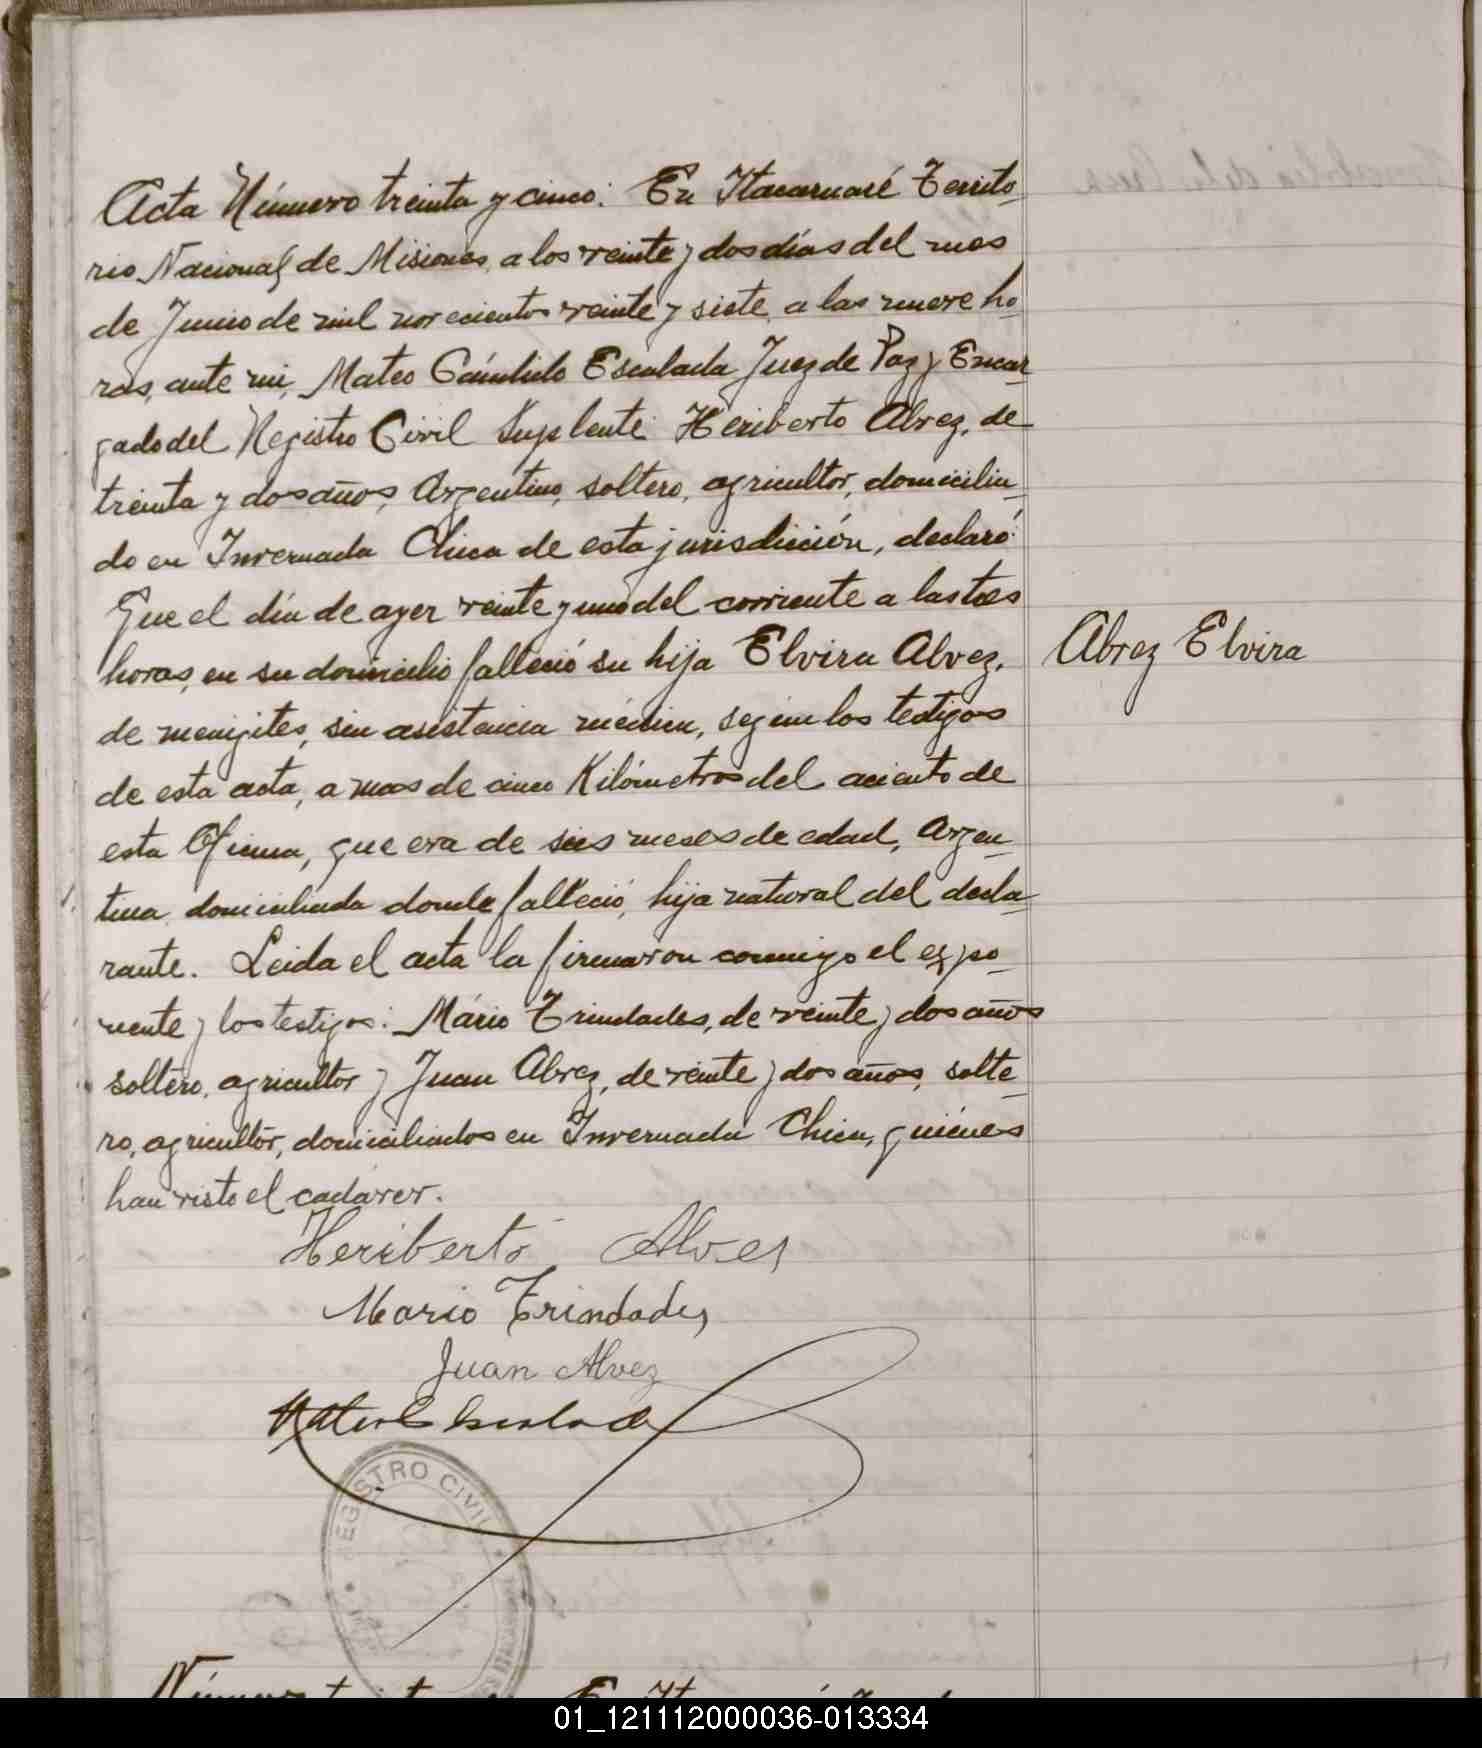 Acta Número treinta y cinco: En Itacaruaré Territo-
rio Nacional de Misiones, a los veinte y dos días del mes
de Junio de mil novecientos veinte y siete, a las nueve ho-
ras, ante mi, Mateo Cándido Escalada Juez de Paz y Encar-
gado del Registro Civil Suplente Heriberto Alvez, de
treinta y dos años, Argentino, soltero, agricultor, domicilia-
do en Invernada Chica de esta jurisdicción, declaró:
Que el día de ayer veinte y uno del corriente a las tres
horas, en su domicilio falleció su hija Elvira Alvez,
Alvez Elvira
de menigites, sin asistencia médica, según los testigos
de esta acta, a mas de cinco Kilómetros del aciento de
esta Oficina, que era de seis meses de edad, Argen-
tina, domiciliada donde falleció, hija natural del decla-
rante. Leida el acta la firmaron conmigo el expo-
nente y los testigos: Mário Trindades, de veinte y dos años
soltero, agricultor y Juan Alvez, de veinte y dos años, solte-
ro, agricultor, domiciliados en Invernada Chica, quiénes
han visto el cadáver.
Heriberto Alves
Mario Trindades
Juan Alvez
Mateo C Escalada
REGISTRO CIVIL
Número
01_121112000036-013334